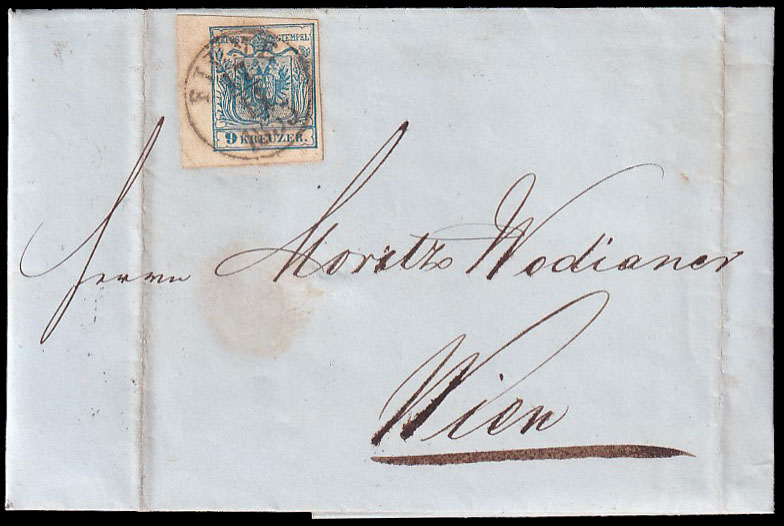 KK POST-STEMPEL
FIUME
9 KREUZER.
Herrn Moritz Wodianer
Wien